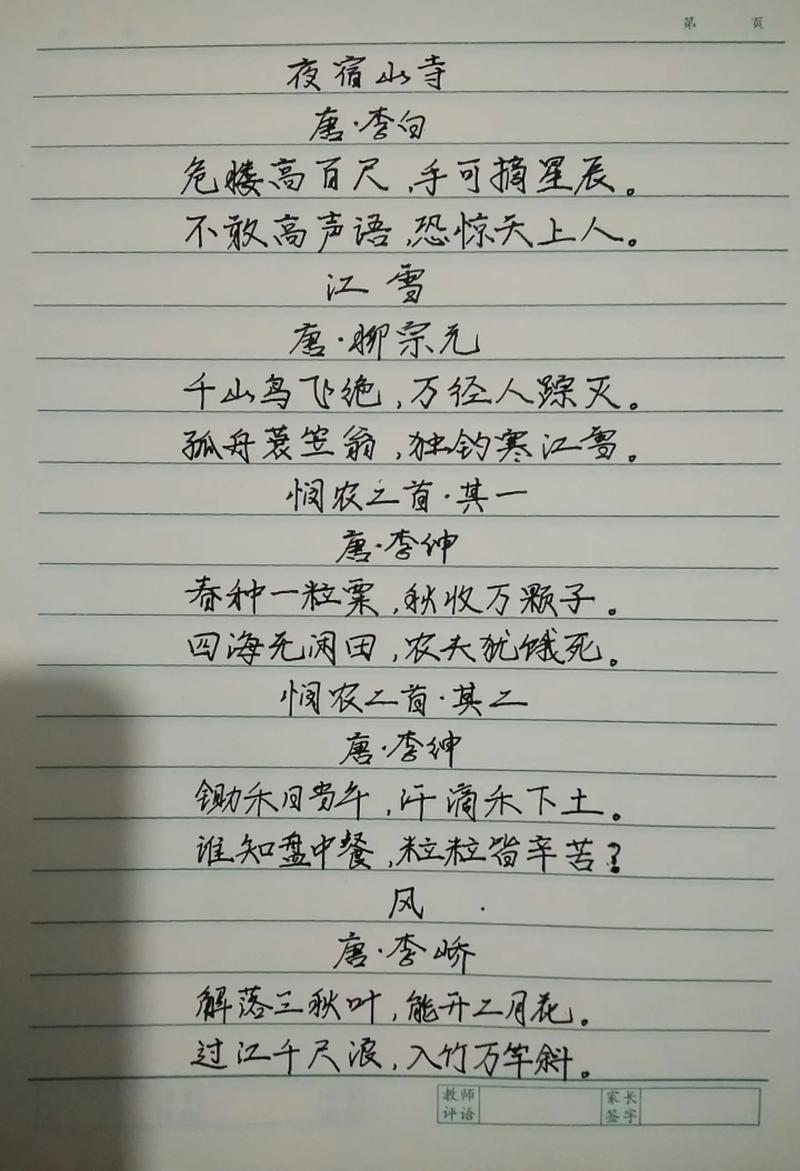 第 页
夜宿山寺
唐·李白
危楼高百尺,手可摘星辰。
不敢高声语,恐惊天上人。
江雪
唐·柳宗元
千山鸟飞绝,万径人踪灭。
孤舟蓑笠翁,独钓寒江雪。
悯农二首·其一
唐·李绅
春种一粒粟,秋收万颗子。
四海无闲田,农夫犹饿死。
悯农二首·其二
唐·李绅
锄禾日当午,汗滴禾下土。
谁知盘中餐,粒粒皆辛苦?
风
唐·李峤
解落三秋叶,能开二月花。
过江千尺浪,入竹万竿斜。
教师评语 家长签字